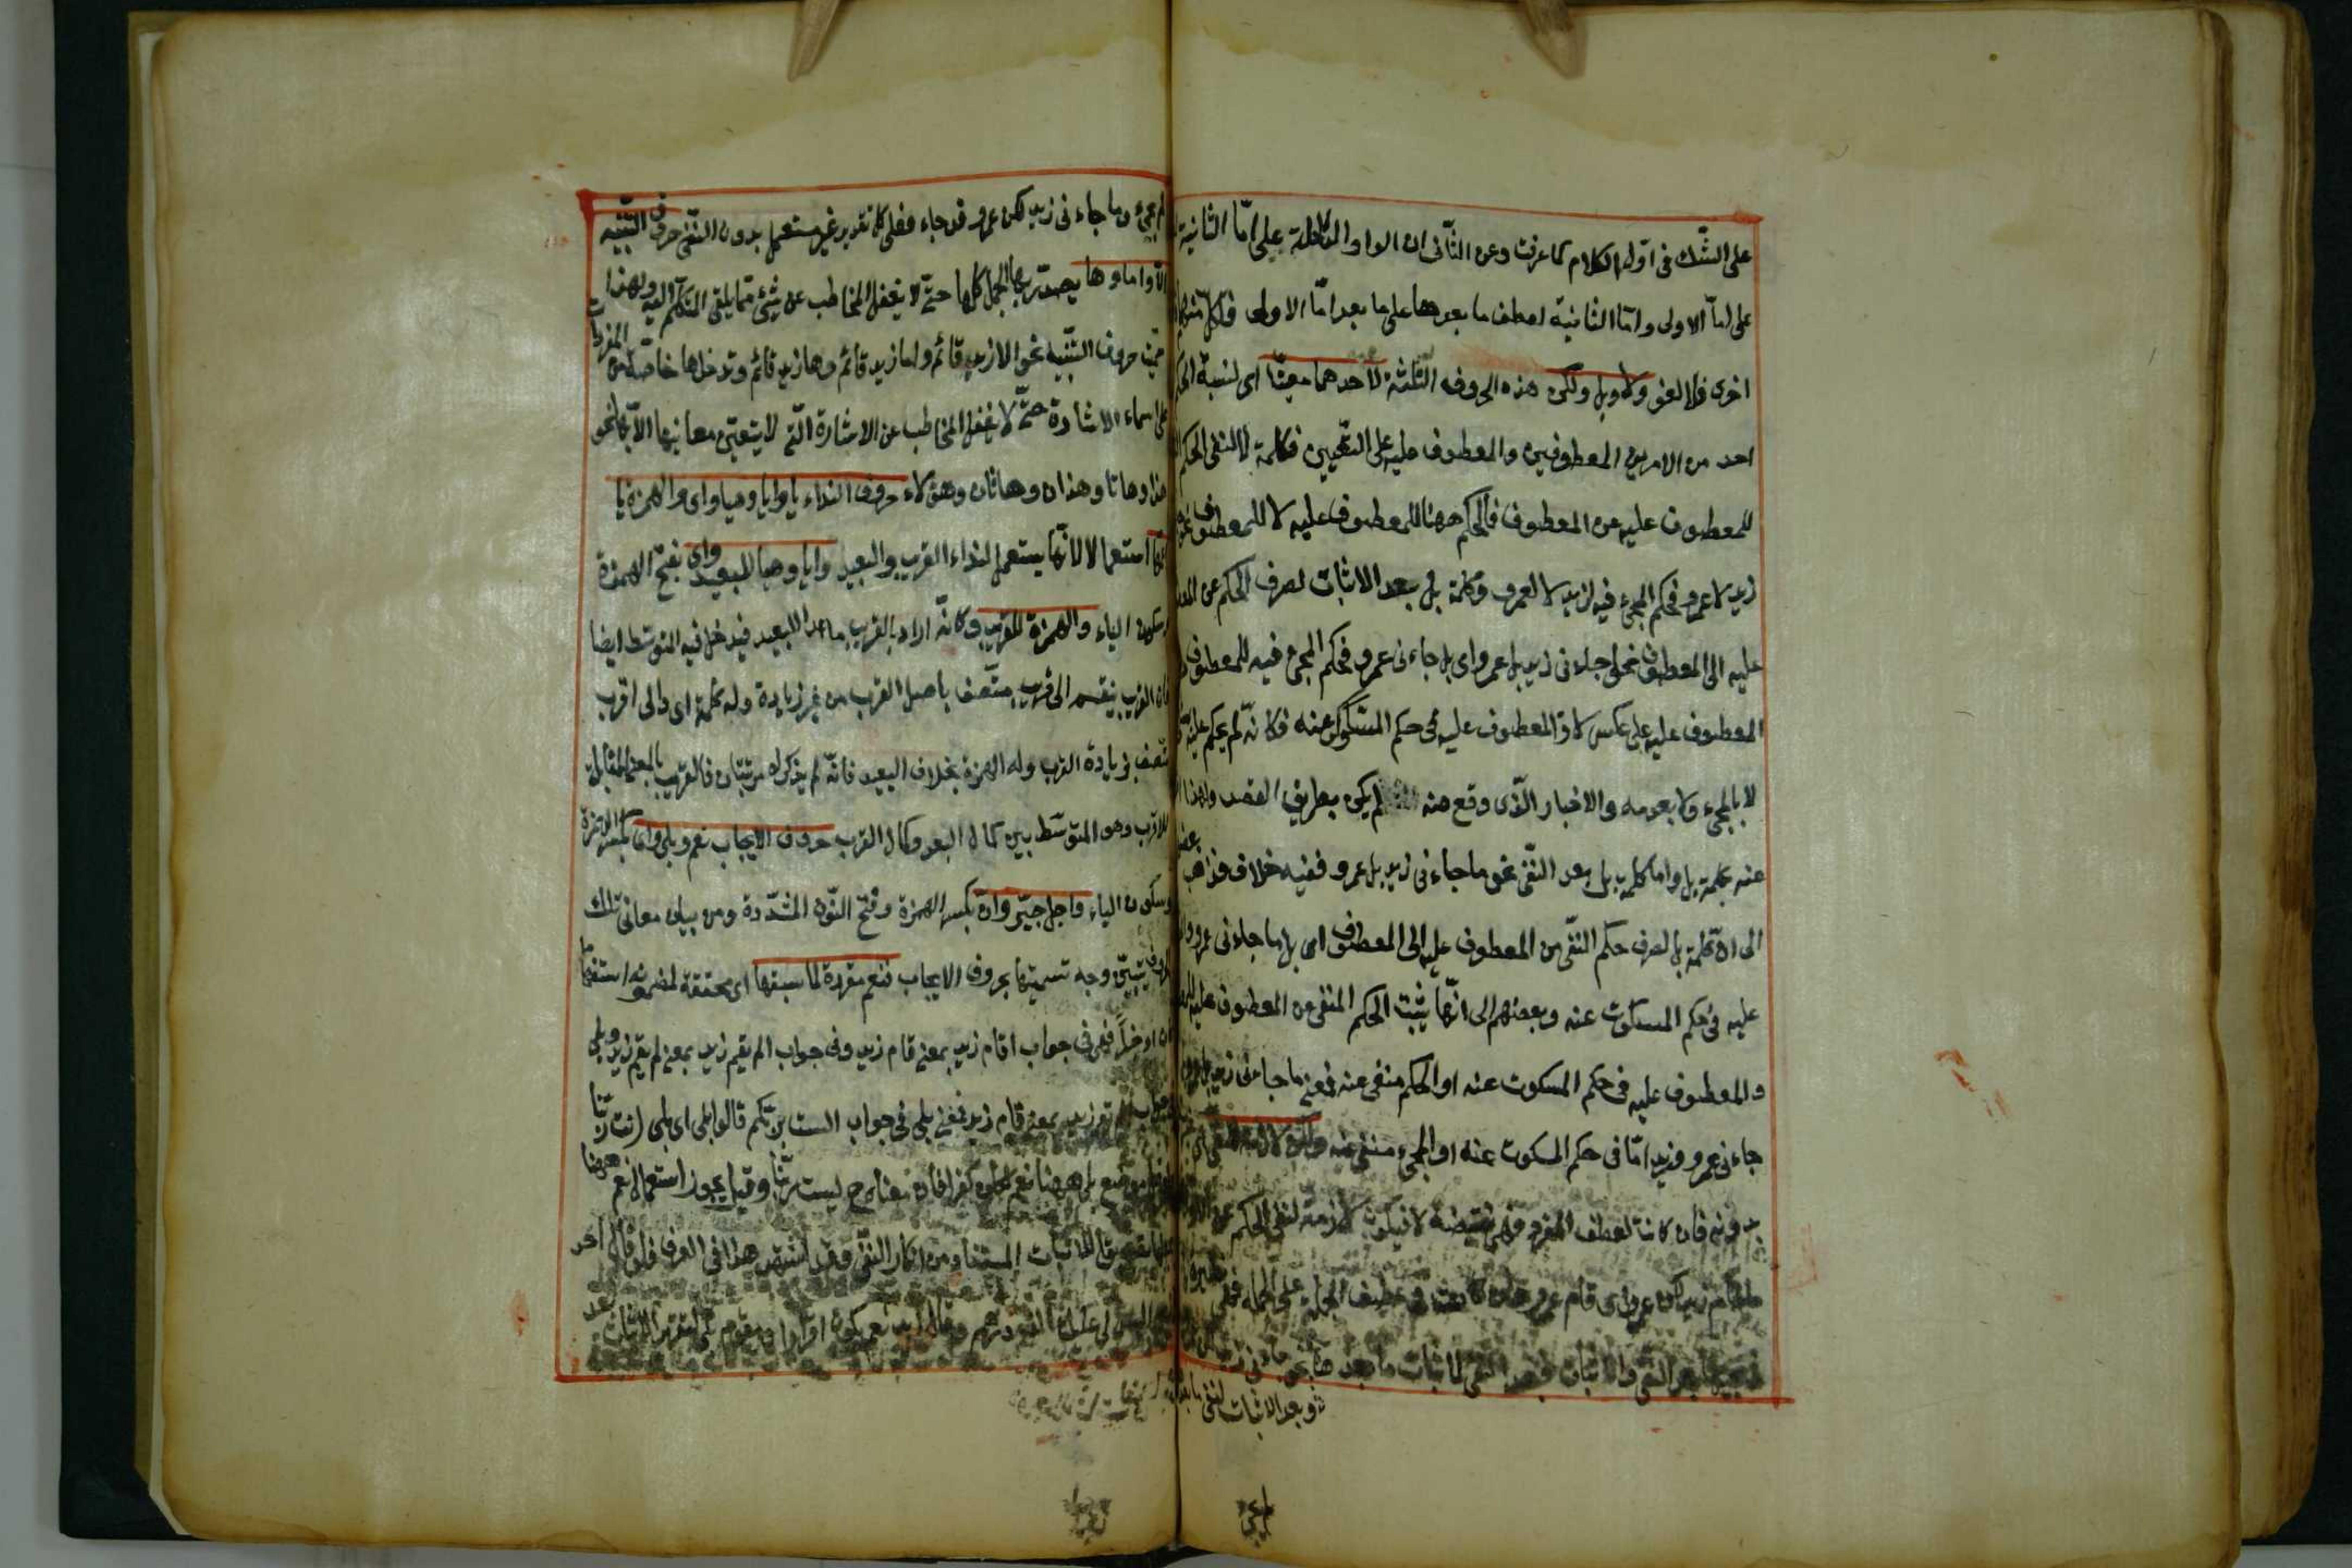 على الشّك فى اوّل الكلام كما عرفت وعن الثّانى ان الواو الدّاخلة على امّا الثانية
على امّا الاولى وامّا الثانية لعطف ما بعدها على ما بعد امّا الاولى فلكلّ منهما
اخرى فلا لغو ولا وبل ولكن هذه الحروف الثّلثة لاحدهما معيّنا اى لنسبة الحكم
احد من الامرين المعطوفين والمعطوف عليه على التّعيين فكلمة لا لنفى الحكم
للمعطوف عليه من المعطوف فالحكم ههنا للمعطوف عليه لا للمعطوف نحو
زيد لا عمرو فحكم المجىء فيه لزيد لا لعمرو وكلمة بل بعد الاثبات لصرف الحكم عن
عليه الى المعطوف نحو جاءنى زيد بل عمرو اى بل جاءنى عمرو فحكم المجىء فيه للمعطوف
المعطوف عليه على عكس لا والمعطوف عليه فى حكم المسكوت عنه فكانّه لم يحكم عليه
لا بالمجىء ولا بعدمه والاخبار الّذى وقع منه لم يكن بطريق القصد ولهذا
عنه بكلمة بل واما كلمة بل بعد النّفى نحو ما جاءنى زيد بل عمرو ففيه خلاف فذهب بعضهم
الى انّ كلمة بل لصرف حكم النّفى من المعطوف عليه الى المعطوف اى بل ما جاءنى عمرو
عليه فى حكم المسكوت عنه وبعضهم الى انّها يثبت الحكم المنفى عن المعطوف عليه
والمعطوف عليه فى حكم المسكوت عنه او الحكم منفى عنه فمعنى ما جاءنى زيد بل عمرو
جاءنى عمرو وزيد امّا فى حكم المسكوت عنه او المجىء منفى عنه ولكن لازمة للنفى
بدونه فان كانت لعطف المفرد فهى نقيضة لا فيكون لازمة لنفى الحكم عن
ما قام زيد لكن عمرو اى قام عمرو وان كانت لعطف الجملة على الجملة فهى نظيرة
بعد النفى والاثبات فبعد النفى لاثبات ما بعدها نحو
وبعد الاثبات لنفى ما بعدها
لم يجىء وما جاءنى زيد لكن عمرو قد جاء فعلى كلا تقدير غير مستعمل بدون النّفى حروف التّنبيه
الا واما وها يصدّر بها الجمل كلها حتّى لا يغفل المخاطب عن شىء ممّا يلقى المتكلّم اليه ولهذا
سمّيت حروف التنبيه نحو الا زيد قائم واما زيد قائم وها زيد قائم وتدخل ها خاصّة من المفردات
على اسماء الاشارة حتّى لا يغفل المخاطب عن الاشارة الّتى لا يتعيّن معانيها الّا بها نحو
هذا وهاتا وهذان وهاتان وهؤلاء حروف النداء يا وايا وهيا واى والهمزة يا
اعمّها استعمالا لانّها يستعمل لنداء القريب والبعيد وايا وهيا للبعيد واى بفتح الهمزة
وسكون الياء والهمزة للقريب وكانّه اراد بالقريب ما عدا البعيد فيدخل فيه المتوسّط ايضا
فان القريب ينقسم الى قريب متّصف باصل القرب من غير زيادة وله كلمة اى والى اقرب
متّصف بزيادة القرب وله الهمزة بخلاف البعيد فانّه لم يذكر له مرتبتان فالقريب بالمعنى المقابل
للاقرب وهو المتوسّط بين كمال البعد وكمال القرب حروف الايجاب نعم وبلى واى بكسر الهمزة
وسكون الياء واجل جير وان بكسر الهمزة وفتح النّون المشدّدة ومن بيان معانى تلك
الحروف يتبيّن وجه تسميتها بحروف الايجاب فنعم مقررة لما سبقها اى محققة لمضمونه استفهاما
كان او خبرا فهى فى جواب اقام زيد بمعنى قام زيد وفى جواب الم يقم زيد بمعنى لم يقم زيد وبلى
زيد بمعنى قام زيد فمعنى بلى فى جواب الست بربّكم قالوا بلى اى بلى انت ربّنا
موضع بلى ههنا نعم لكان كفرا فان معناه ح ليست ربّنا وقيل يجوز استعمال نعم ههنا
الاثبات المستفاد من انكار النّفى وقد اشتهر هذا فى العرف فلو قال احد
اليس لى عليك الف درهم وقال زيد نعم يكون اقرارا ويقوم